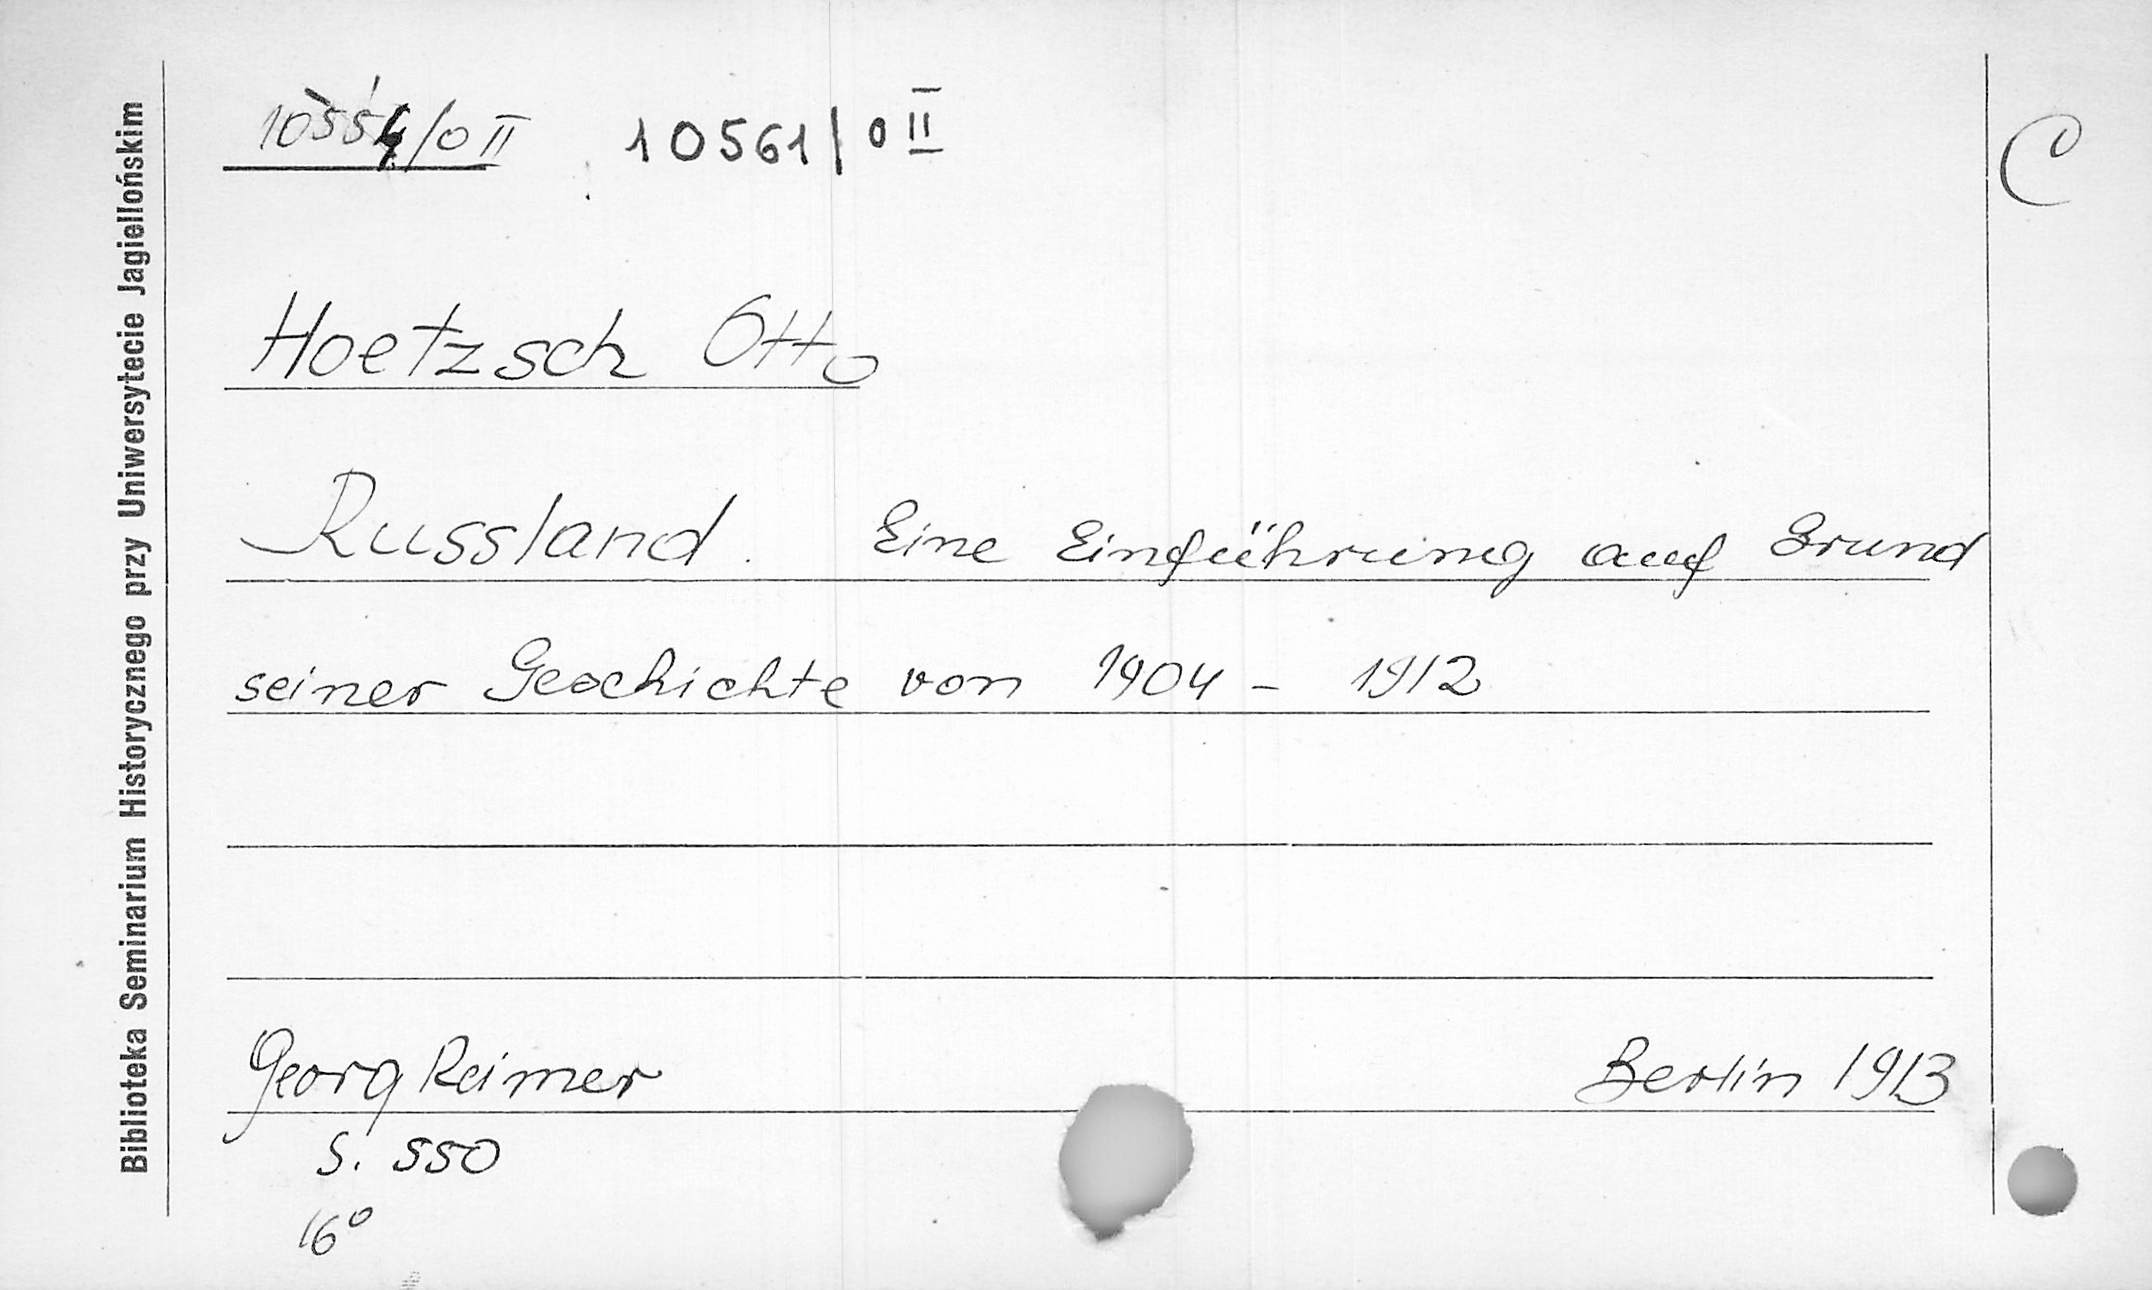 10554/0 II 10561/0 II
C
Hoetzsch Otto
Russland. Eine Einführung auf Grund
seiner Geschichte von 1904 - 1912
Georg Reimer Berlin 1913
S. 550
16°
Biblioteka Seminarium Historycznego przy Uniwersytecie Jagiellońskim